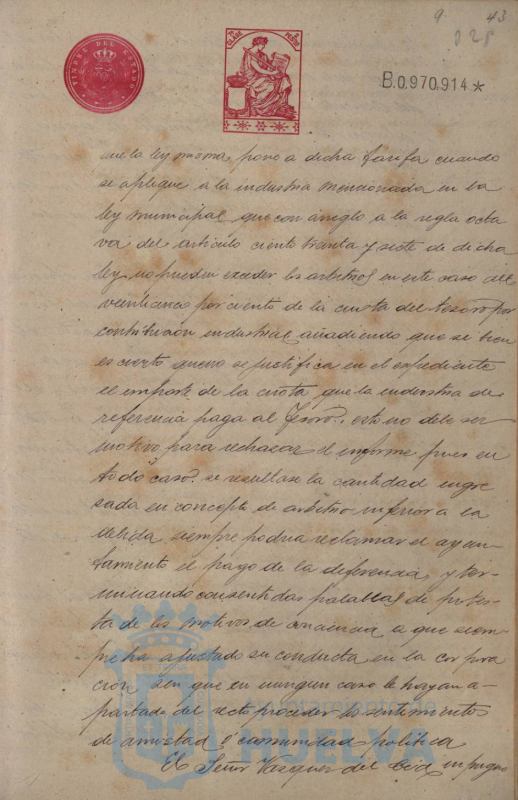 9 43
TIMBRE DEL ESTADO
B.0.970,914 *
que la ley misma pone a dicha tarifa cuando
se aplique a la industria mencionada en la
ley municipal, que con arreglo a la regla octa
va del artículo ciento treinta y siete de dicha
ley no pueden exceder los arbitrios en este caso del
veinticinco por ciento de la cuota del tesoro por
contribución industrial, añadiendo que se bien
es cierto que no se justifica en el expediente
el importe de la cuota que la industria de
referencia paga al Tesoro, esto no debe ser
motivo para rechazar el informe pues en
todo caso se resultase la cantidad ingre
sada en concepto de arbitrio inferior a la
debida, siempre podria reclamar el ayun-
tamiento el pago de la diferencia, y ter-
minando con sentidas palabras de protes-
ta de los motivos de conciencia a que siem-
pre ha ajustado su conducta en la corpora
cion sin que en ningun caso le hayan a-
partado del recto proceder los sentimientos
de amistad o comunidad política
El Señor Vazquez del Cid impugno
Ayuntamiento de
HUELVA